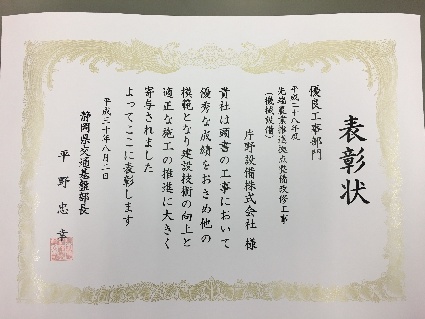 表彰状
優良工事部門
平成二十八年度
先端農業推進拠点整備改修工事
(機械設備)
片野設備株式会社 様
貴社は頭書の工事において
優秀な成績をおさめ他の
模範となり建設技術の向上と
適正な施工の推進に大きく
寄与されました
よってここに表彰します
平成三十年八月二日
静岡県交通基盤部長
平野忠幸